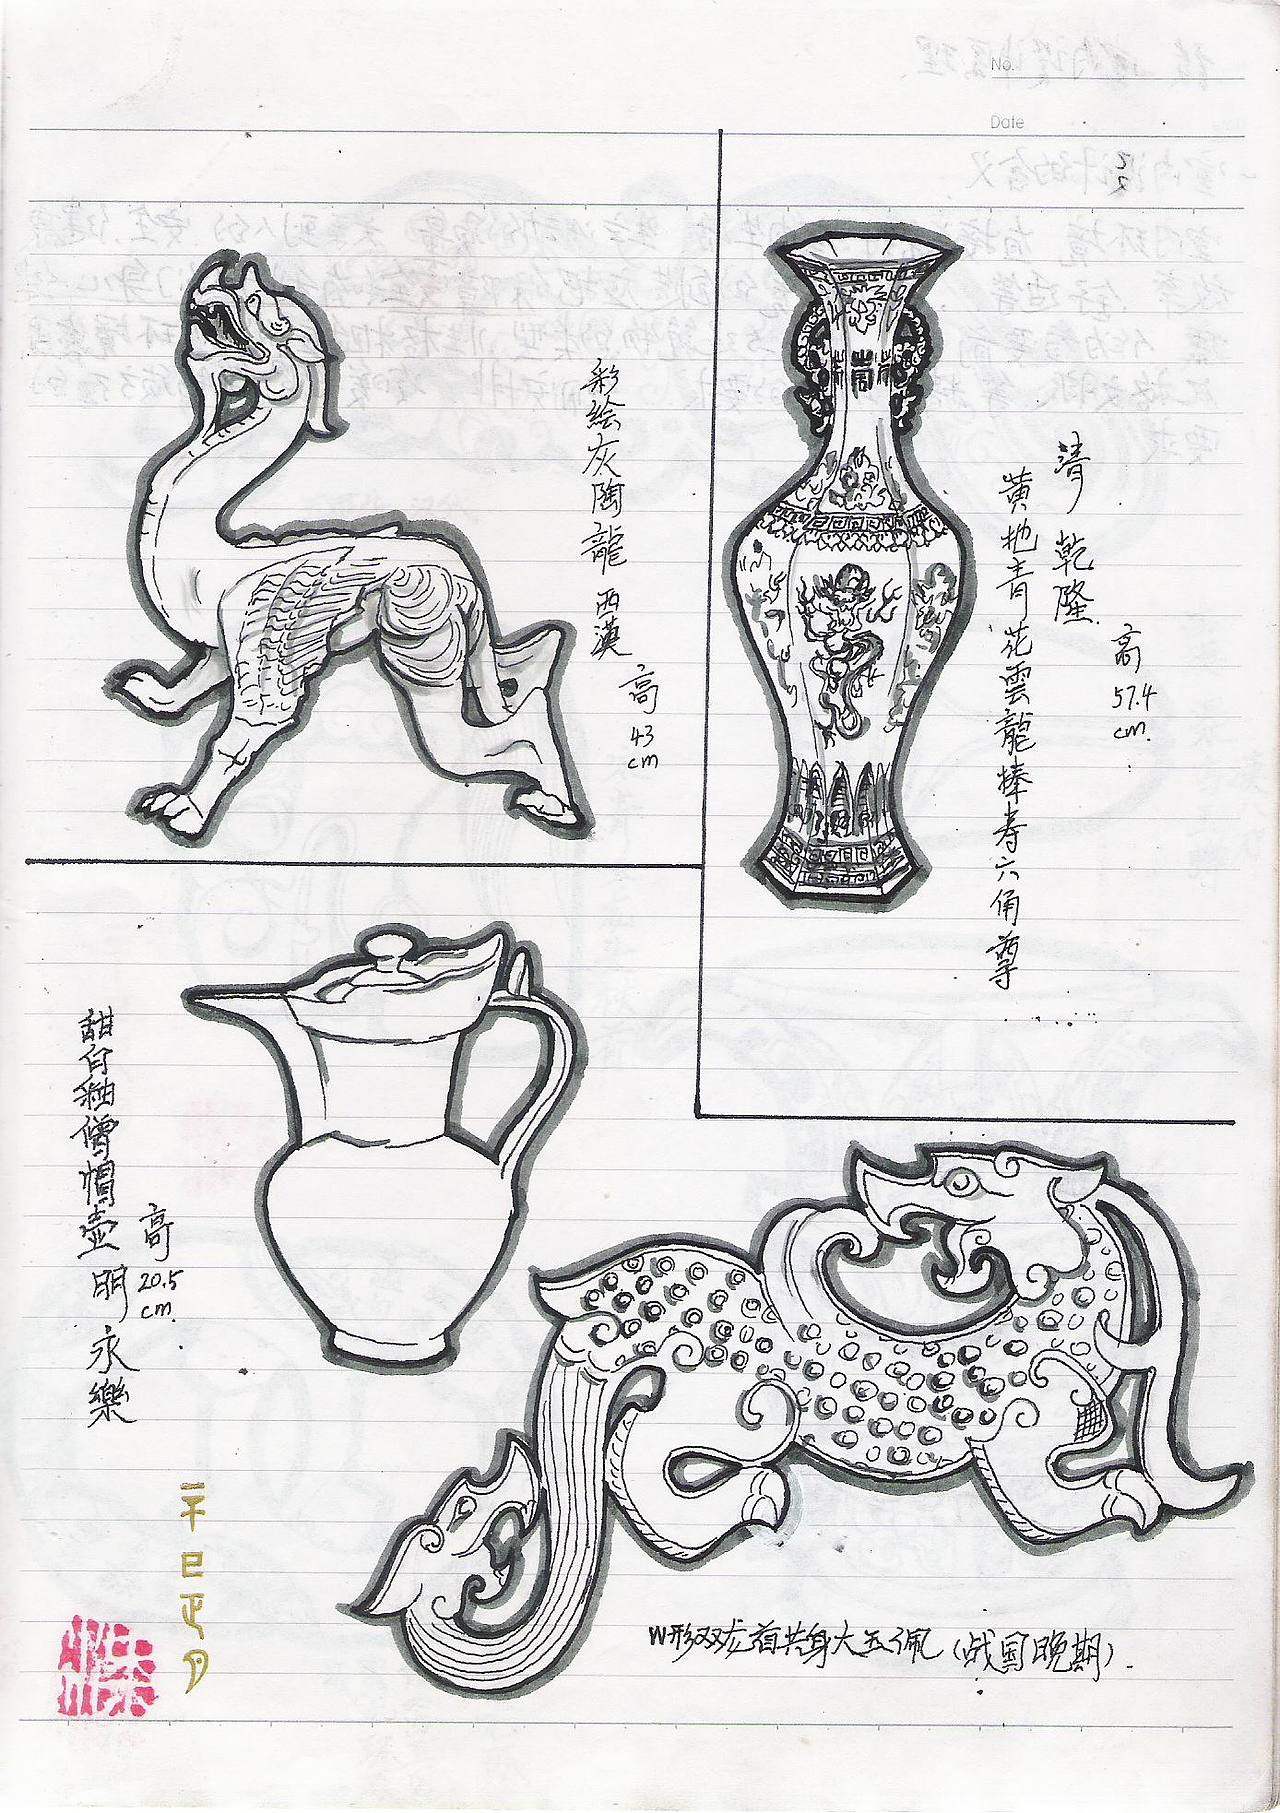 No.
Date
彩绘灰陶龍 西漢
高
43
cm
清 乾隆
黄地青花雲龍捧寿六角尊
高
57.4
cm.
甜白釉僧帽壶 明 永樂
高
20.5
cm.
W形双龙首共身大玉佩(战国晚期).